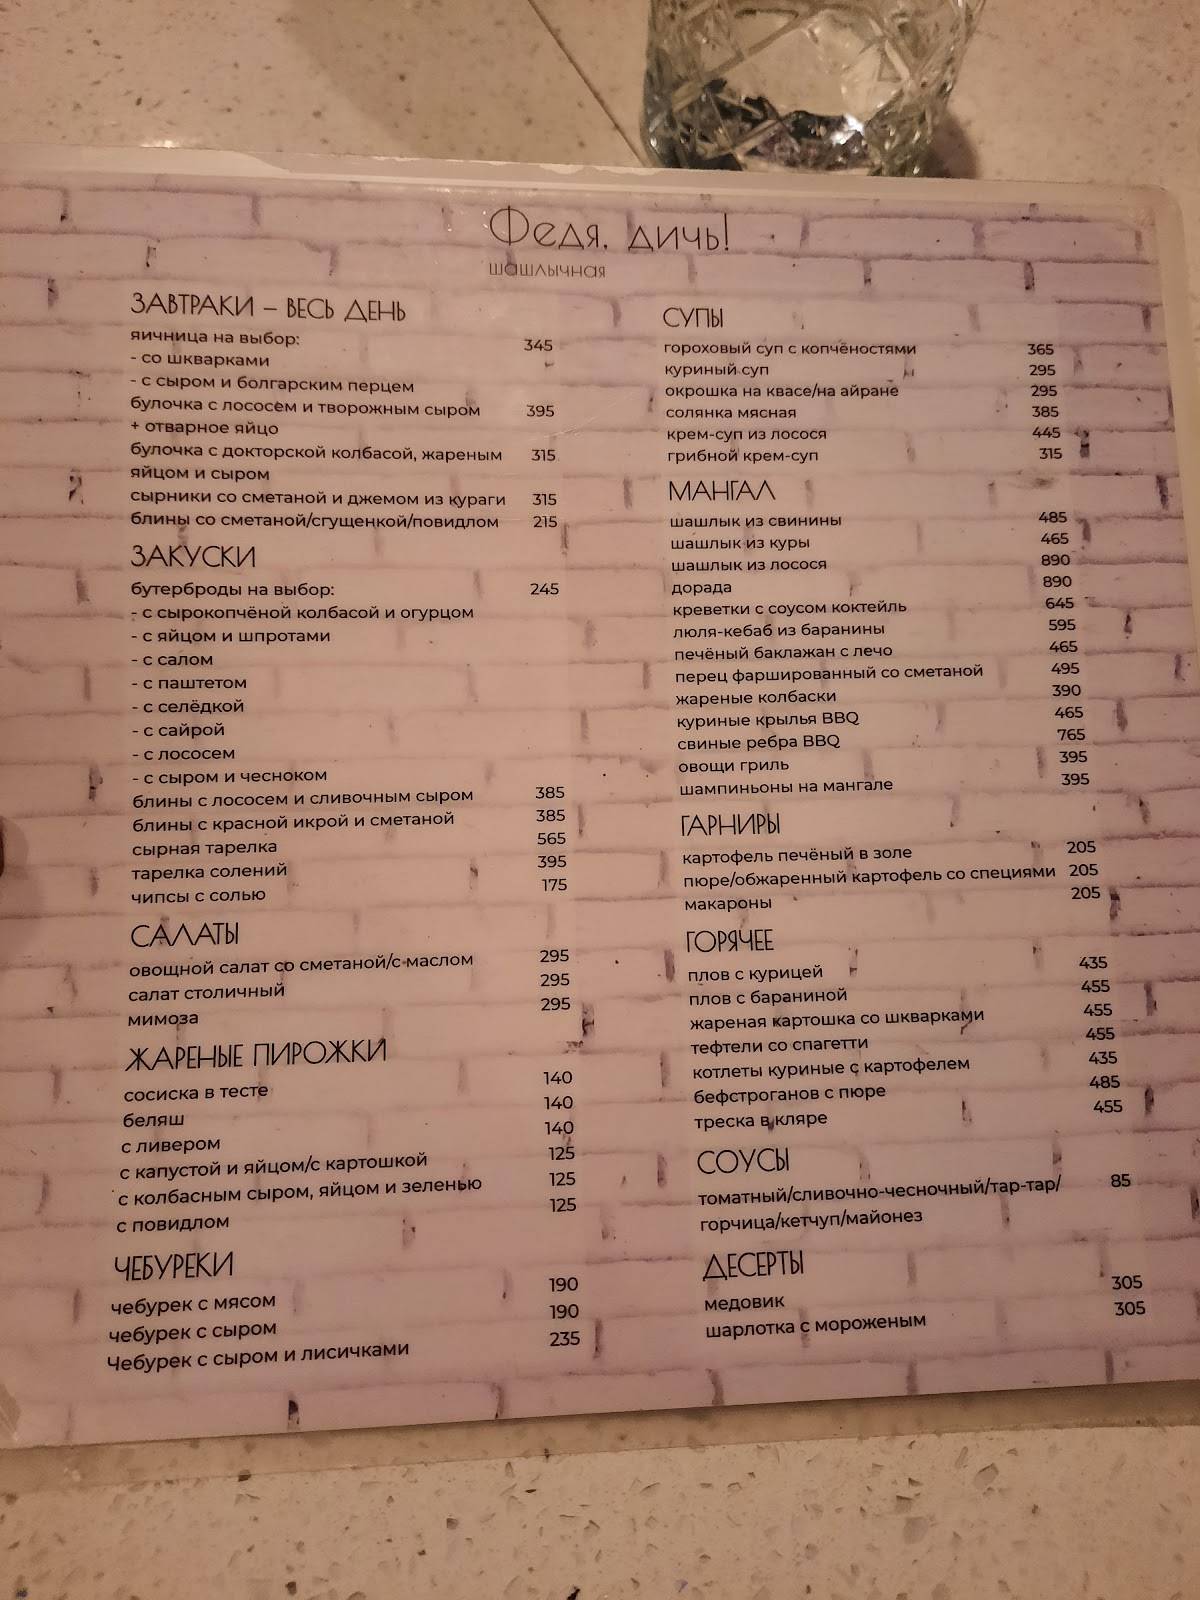 Федя, дичь!
шашлычная
ЗАВТРАКИ – ВЕСЬ ДЕНЬ
яичница на выбор: 345
- со шкварками
- с сыром и болгарским перцем
булочка с лососем и творожным сыром 395
+ отварное яйцо
булочка с докторской колбасой, жареным 315
яйцом и сыром
сырники со сметаной и джемом из кураги 315
блины со сметаной/сгущенкой/повидлом 215
ЗАКУСКИ
бутерброды на выбор: 245
- с сырокопчёной колбасой и огурцом
- с яйцом и шпротами
- с салом
- с паштетом
- с селёдкой
- с сайрой
- с лососем
- с сыром и чесноком
блины с лососем и сливочным сыром 385
блины с красной икрой и сметаной 385
сырная тарелка 565
тарелка солений 395
чипсы с солью 175
САЛАТЫ
овощной салат со сметаной/с маслом 295
салат столичный 295
мимоза 295
ЖАРЕНЫЕ ПИРОЖКИ
сосиска в тесте 140
беляш 140
с ливером 140
с капустой и яйцом/с картошкой 125
с колбасным сыром, яйцом и зеленью 125
с повидлом 125
ЧЕБУРЕКИ
чебурек с мясом 190
чебурек с сыром 190
Чебурек с сыром и лисичками 235
СУПЫ
гороховый суп с копчёностями 365
куриный суп 295
окрошка на квасе/на айране 295
солянка мясная 385
крем-суп из лосося 445
грибной крем-суп 315
МАНГАЛ
шашлык из свинины 485
шашлык из куры 465
шашлык из лосося 890
дорада 890
креветки с соусом коктейль 645
люля-кебаб из баранины 595
печёный баклажан с лечо 465
перец фаршированный со сметаной 495
жареные колбаски 390
куриные крылья BBQ 465
свиные ребра BBQ 765
овощи гриль 395
шампиньоны на мангале 395
ГАРНИРЫ
картофель печёный в золе 205
пюре/обжаренный картофель со специями 205
макароны 205
ГОРЯЧЕЕ
плов с курицей 435
плов с бараниной 455
жареная картошка со шкварками 455
тефтели со спагетти 455
котлеты куриные с картофелем 435
бефстроганов с пюре 485
треска в кляре 455
СОУСЫ
томатный/сливочно-чесночный/тар-тар/ 85
горчица/кетчуп/майонез
ДЕСЕРТЫ
медовик 305
шарлотка с мороженым 305